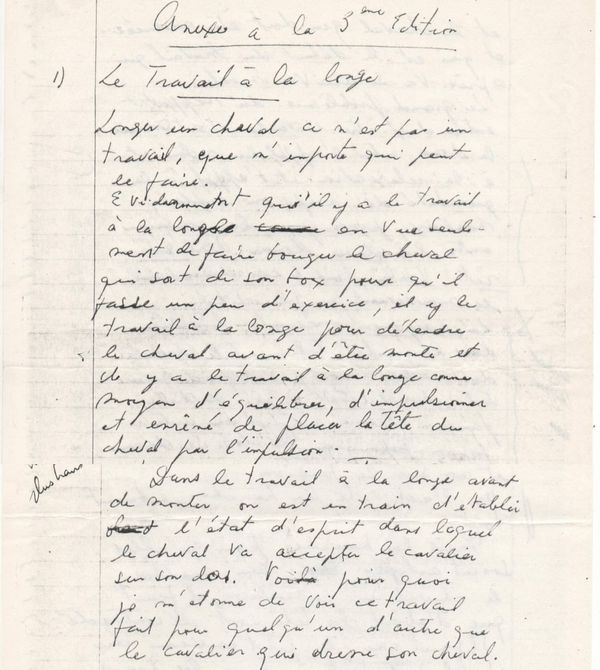 Anexe a la 3ème Edition
1) Le Travail a la longe
Longer un cheval ce n'est pas un
travail, que n'importe qui peut
le faire.
Evidamment qu'il y a le travail
à la longe en vue seule-
ment de faire bouger le cheval
qui sort de son box pour qu'il
fasse un peu d'exercice, il y le
travail à la longe pour détendre
le cheval avant d'être monté et
il y a le travail à la longe comme
moyen d'équilibrer, d'impulsionner
et enrêné de placer la tête du
cheval par l'impulsion.
Dans le travail à la longe avant
de monter on est en train d'établir
l'état d'esprit dans lequel
le cheval va accepter le cavalier
sur son dos. Voilà pour quoi
je m'étonne de voir ce travail
fait pour quelqu'un d'autre que
le cavalier qui dresse son cheval.